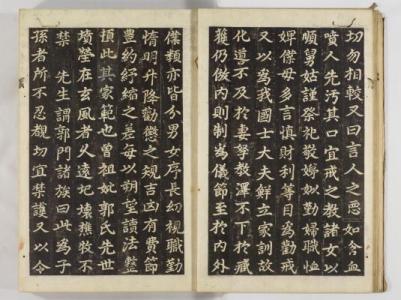 切勿相較又曰言人之惡如含血
噴人先汚其口宜戒之教諸女以
順舅姑謹祭祀敬娣姒勤婦職恤
婢僕毋多言愼財利等目爲勸戒
又以爲我國士大夫鮮立家訓故
化導不及於妻孥敎澤不下於臧
獲仍倣內則制爲儀節至於內外
僕類亦皆分男女序長幼視職勤
惰明升降勸懲之規吉凶有費節
豐約紓縮之差每以朔望讀法整
頓此其家範也曾祖妣郭氏先世
墳塋在玄風者久遠圮壞樵牧不
禁 先生謂郭門諸族曰此爲子
孫者所不忍覩切宜禁護又以令